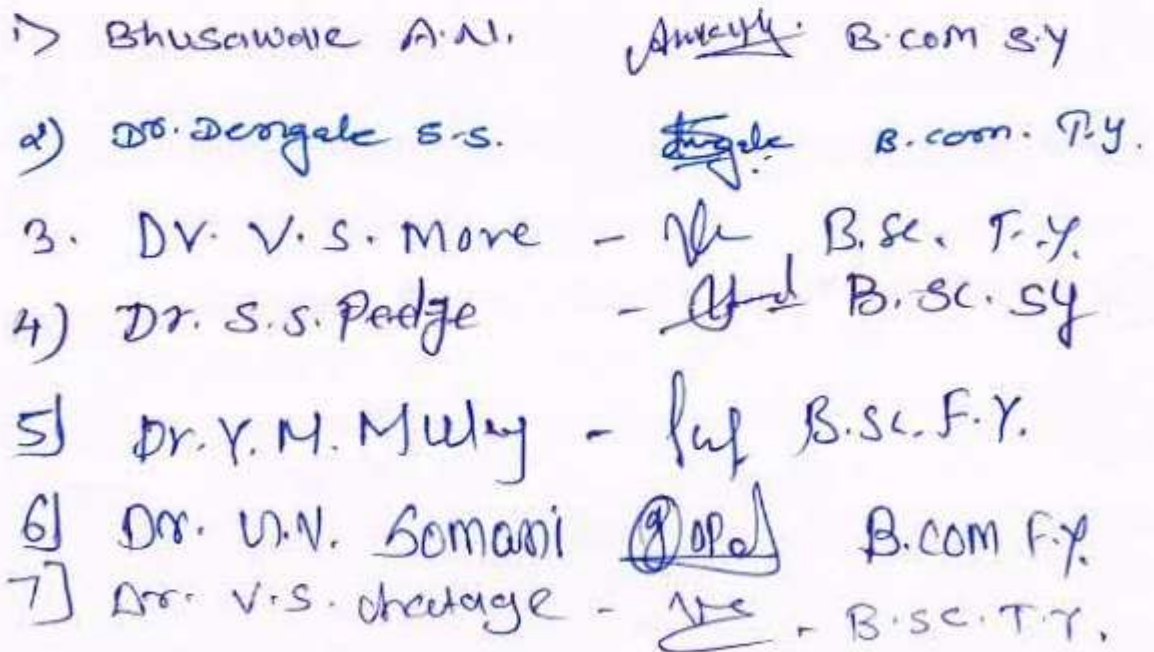 1) Bhusawale A.N. B.com S.Y
2) Dr. Dengale S.S. B.com. T.Y.
3. Dr. V.S. More - B.Sc. T.Y.
4) Dr. S.S. Padge - B.Sc. SY
5] Dr. Y.M. Muley - B.Sc. F.Y.
6] Dr. U.V. Somani Gopal B.COM F.Y.
7] Dr. V.S. - B.Sc. T.Y.